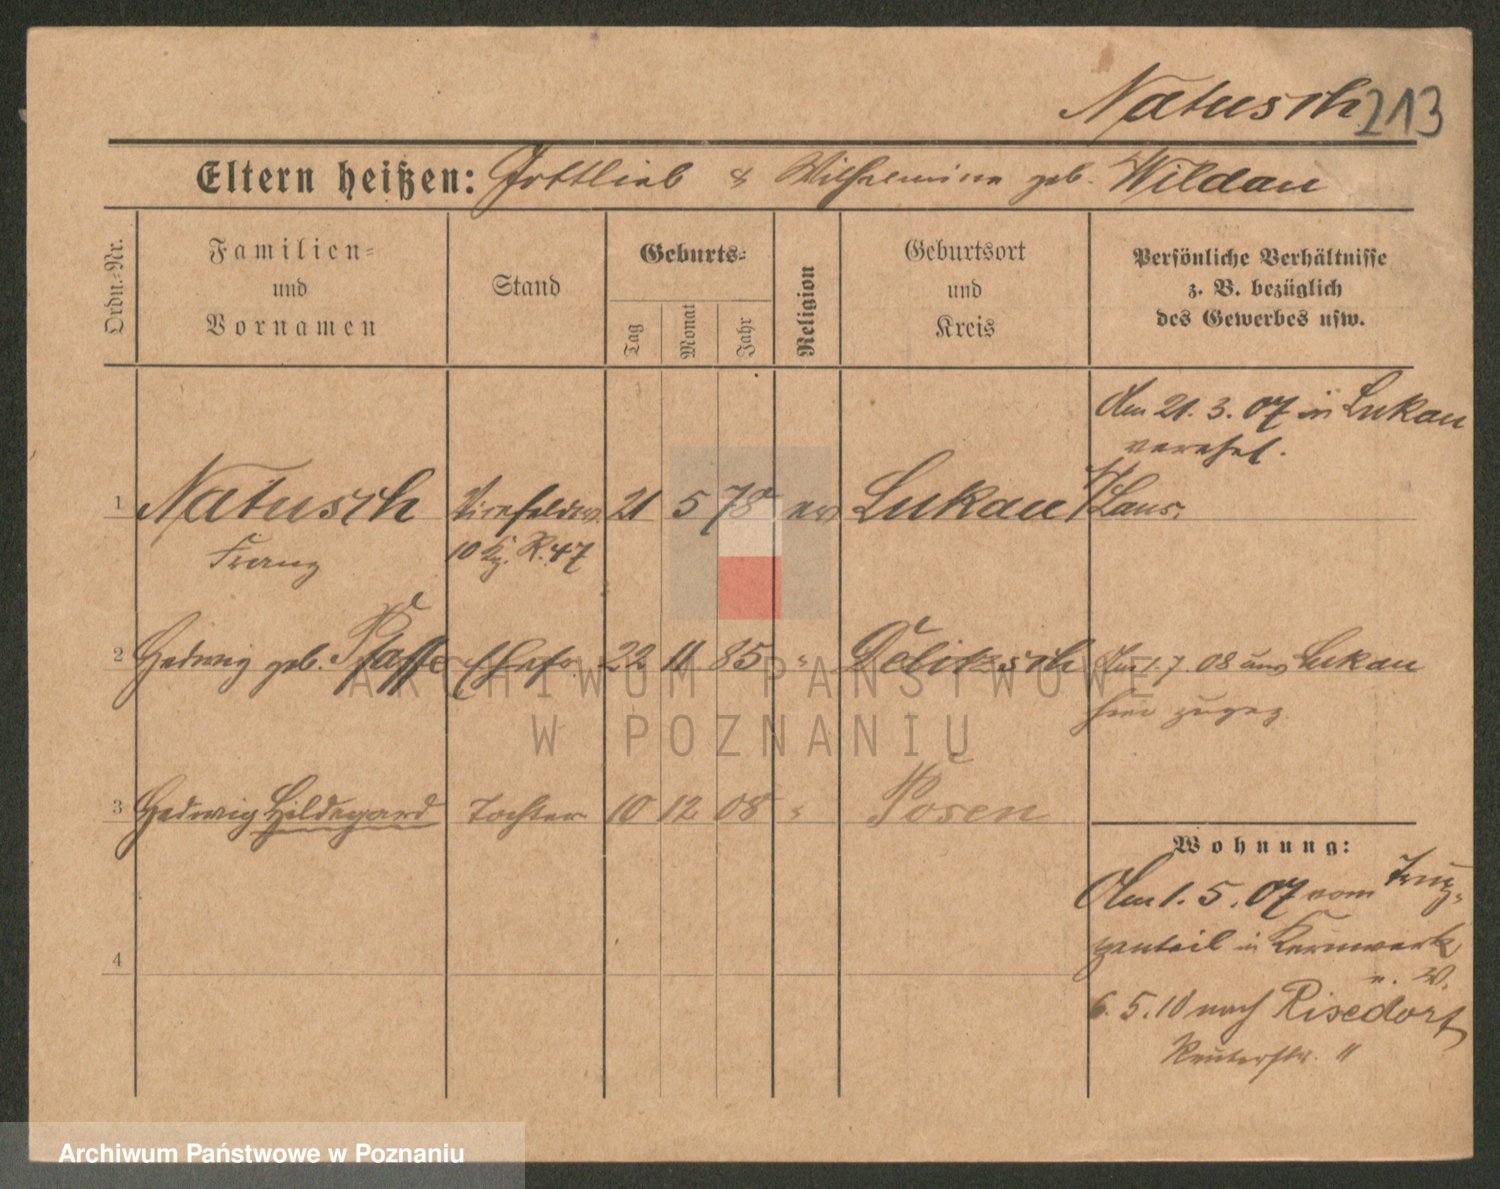 Natusch 213
Eltern heißen: Gottlieb & Wilhelmine geb. Wildau
Ordn.-Nr.
Familien-
und
Vornamen
Stand
Geburts-
Tag
Monat
Jahr
Religion
Geburtsort
und
Kreis
Persönliche Verhältnisse
z. B. bezüglich
des Gewerbes usw.
Am 21. 3. 07 in Lukau
verehel.
1 Natusch Vizefeldw. 21 5 78 ev Lukau N/Laus.
Franz 10 Kp. R. 47
2 Hedwig geb. Pfaffe Ehefr. 22 11 85 " Delitzsch Am 1. 7. 08 aus Lukau
hier zugez.
3 Hedwig Hildegard Tochter 10 12 08 " Posen
Wohnung:
Am 1. 5. 07 vom
in Kernwerk
4
6. 5. 10 nach Risedorf
ARCHIWUM PAŃSTWOWE
W POZNANIU
Archiwum Państwowe w Poznaniu